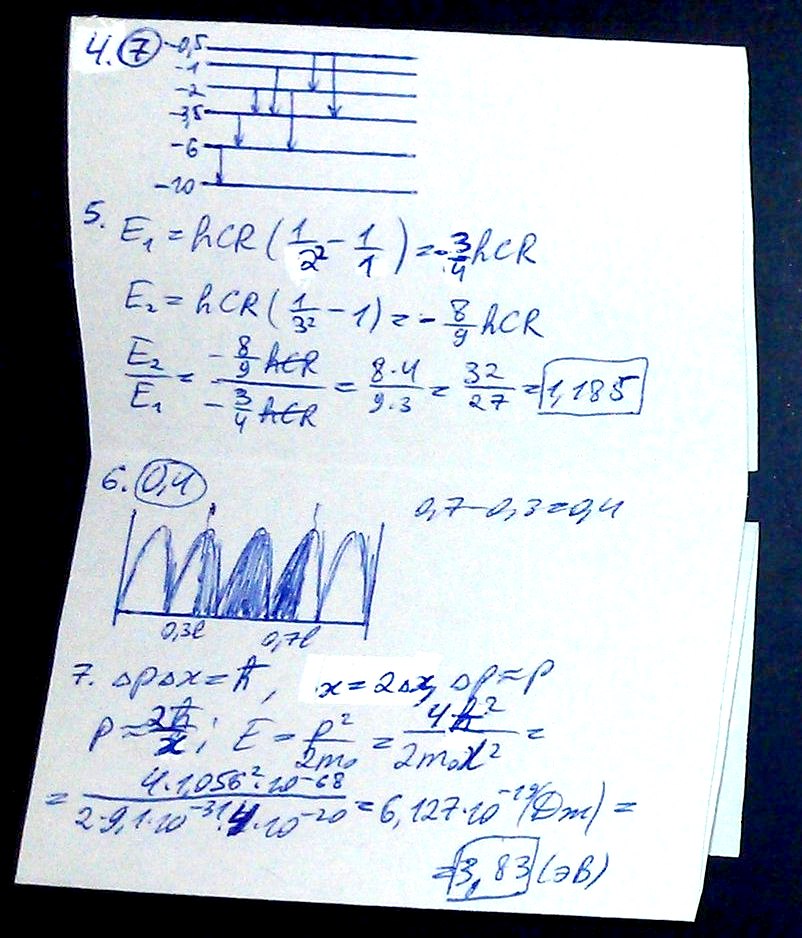 4. 7 -0,5
-1
-2
-3,5
-6
-10
5. E₁ = hCR (1/2² - 1/1) = -3/4 hCR
E₂ = hCR (1/3² - 1) = - 8/9 hCR
E₂/E₁ = (- 8/9 hCR)/(- 3/4 hCR) = 8·4/9·3 = 32/27 = 1,185
6. 0,4
0,7-0,3=0,4
0,3l 0,7l
7. ΔpΔx=ħ, x = 2Δx, Δp≈p
p ≈ 2ħ/x; E = p²/2m₀ = 4ħ²/2m₀x² =
= 4·1,056²·10⁻⁶⁸/2·9,1·10⁻³¹·4·10⁻²⁰ = 6,127·10⁻¹⁹(Дж) =
= 3,83 (эВ)